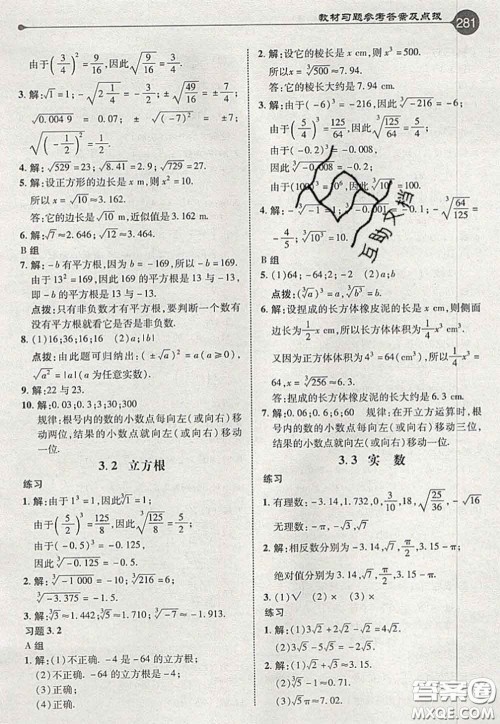 教材习题参考答案及点拨 281
由于(3/4)²=9/16,因此√(9/16)=3/4.
3. 解:√1=1;-√(9/16)=-3/4;
√0.004 9=0.07;±√(49/81)=±7/9;
±√(-7)²=±7;
√(-1/2)²=1/2.
4. 解:√529=23;√8.41=2.9;√729=27.
5. 解:设正方形的边长是x m,则x²=10,
所以x=√10≈3.162.
答:它的边长,近似值是3.162 m.
6. 解:√7≈2.646;√12≈3.464.
B组
7. 解:-b有平方根,因为-b是非负数.
由于13²=169,因此169的平方根是13与-13.
所以-b的平方根是13与-13.
点拨:只有非负数才有平方根,判断一个数有
没有平方根就看它是否是非负数.
8. (1)16;16;4;4 (2)a;|a|
点拨:由此题可归纳出:(±√a)²=a(a≥0),
√a²=|a|(a为任意实数).
9. 解:22与23.
10. 解:0.03;0.3;3;30;300
规律:根号内的数的小数点每向左(或向右)移
动两位,结果的小数点向左(或向右)移动
一位.
3.2 立方根
练习
1. 解:由于1³=1,因此∛1=1;
由于(5/2)³=125/8,因此∛(125/8)=5/2;
由于(-0.5)³=-0.125,
因此∛-0.125=-0.5.
2. 解:∛-1 000=-10;∛216=6;
∛-3.375=-1.5;
3. 解:∛3≈1.442;∛5≈1.710;∛-7≈-1.913.
习题3.2
A组
1. 解:(1)不正确. -4是-64的立方根.
(2)不正确. -64的立方根是-4.
(3)正确.
(4)正确.
2. 解:设它的棱长是x cm,则x³=500,
所以x=∛500≈7.94.
答:它的棱长大约是7.94 cm.
3. 解:由于(-6)³=-216,因此∛-216=-6;
由于(5/4)³=125/64,因此∛(125/64)=5/4;
由于(-0.2)³=-0.008,
因此∛-0.008=-0.2;
B组
5. (1)64;-64;2;-2 (2)a;b
点拨:(∛a)³=a,∛b³=b.
6. 解:设捏成的长方体橡皮泥的长是x cm,则侧面
边长为1/2x cm,所以长方体体积为1/4x³ cm³.
又因为正方体体积为4³=64(cm³),因此1/4x³=64,
x=∛256≈6.3.
答:捏成的长方体橡皮泥的长大约是6.3 cm.
7. 解:0.06;0.6;6;60 规律:在开立方运算时,根
号内的数的小数点每向左(或向右)移动三位,
结果的小数点向左(或向右)移动一位.
3.3 实数
练习
1. 有理数:-3.14,1.732,0,18,√(25/36),-√16
无理数:-π,√3,√7
2. 解:相反数分别为-√3,√5,π-3.14.
绝对值分别为√3,√5,3.15-π.
3. (1)√ (2)× (3)×
练习
1. 解:(1)3√2+2√2=5√2
(2)√5-2√5=-√5.
互助文档
答案圈
MXQE.COM